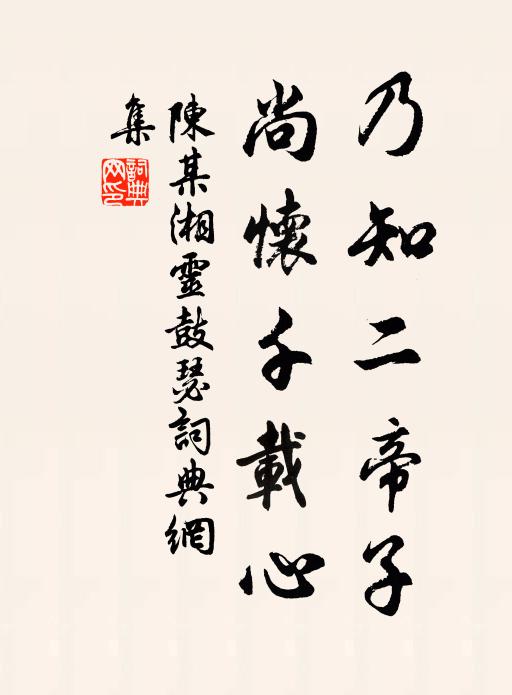 乃知二帝子
尚懷千載心
陳某湘靈鼓瑟詞典網
集
詞典網印